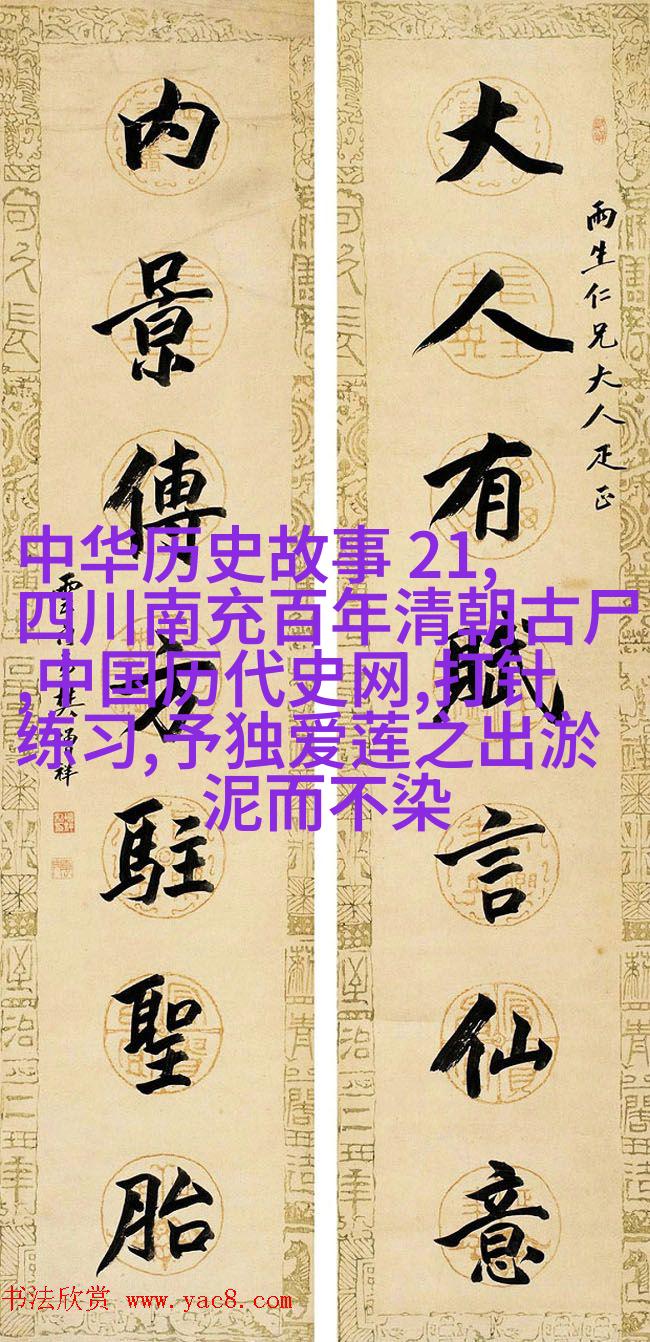 雨生仁兄大人疋正
大人有賦言仙意
内景傳方駐聖胎
樊增祥
中华历史故事 21,
四川南充百年清朝古尸
,中国历代史网,打针
练习,予独爱莲之出淤
泥而不染
书法欣赏 www.yac8.com